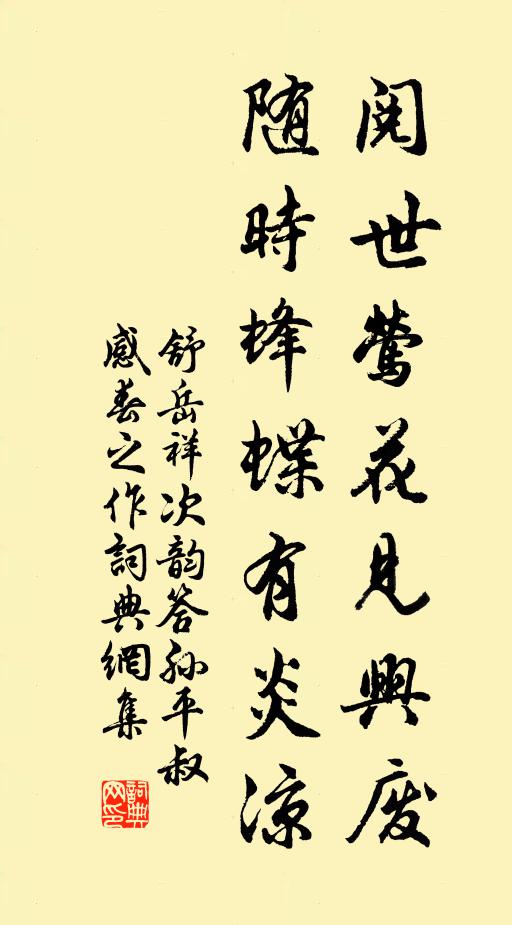 閱世鶯花見興廢
随時蜂蝶有炎凉
舒岳祥次韵答孙平叔
感春之作詞典網集
詞典网印